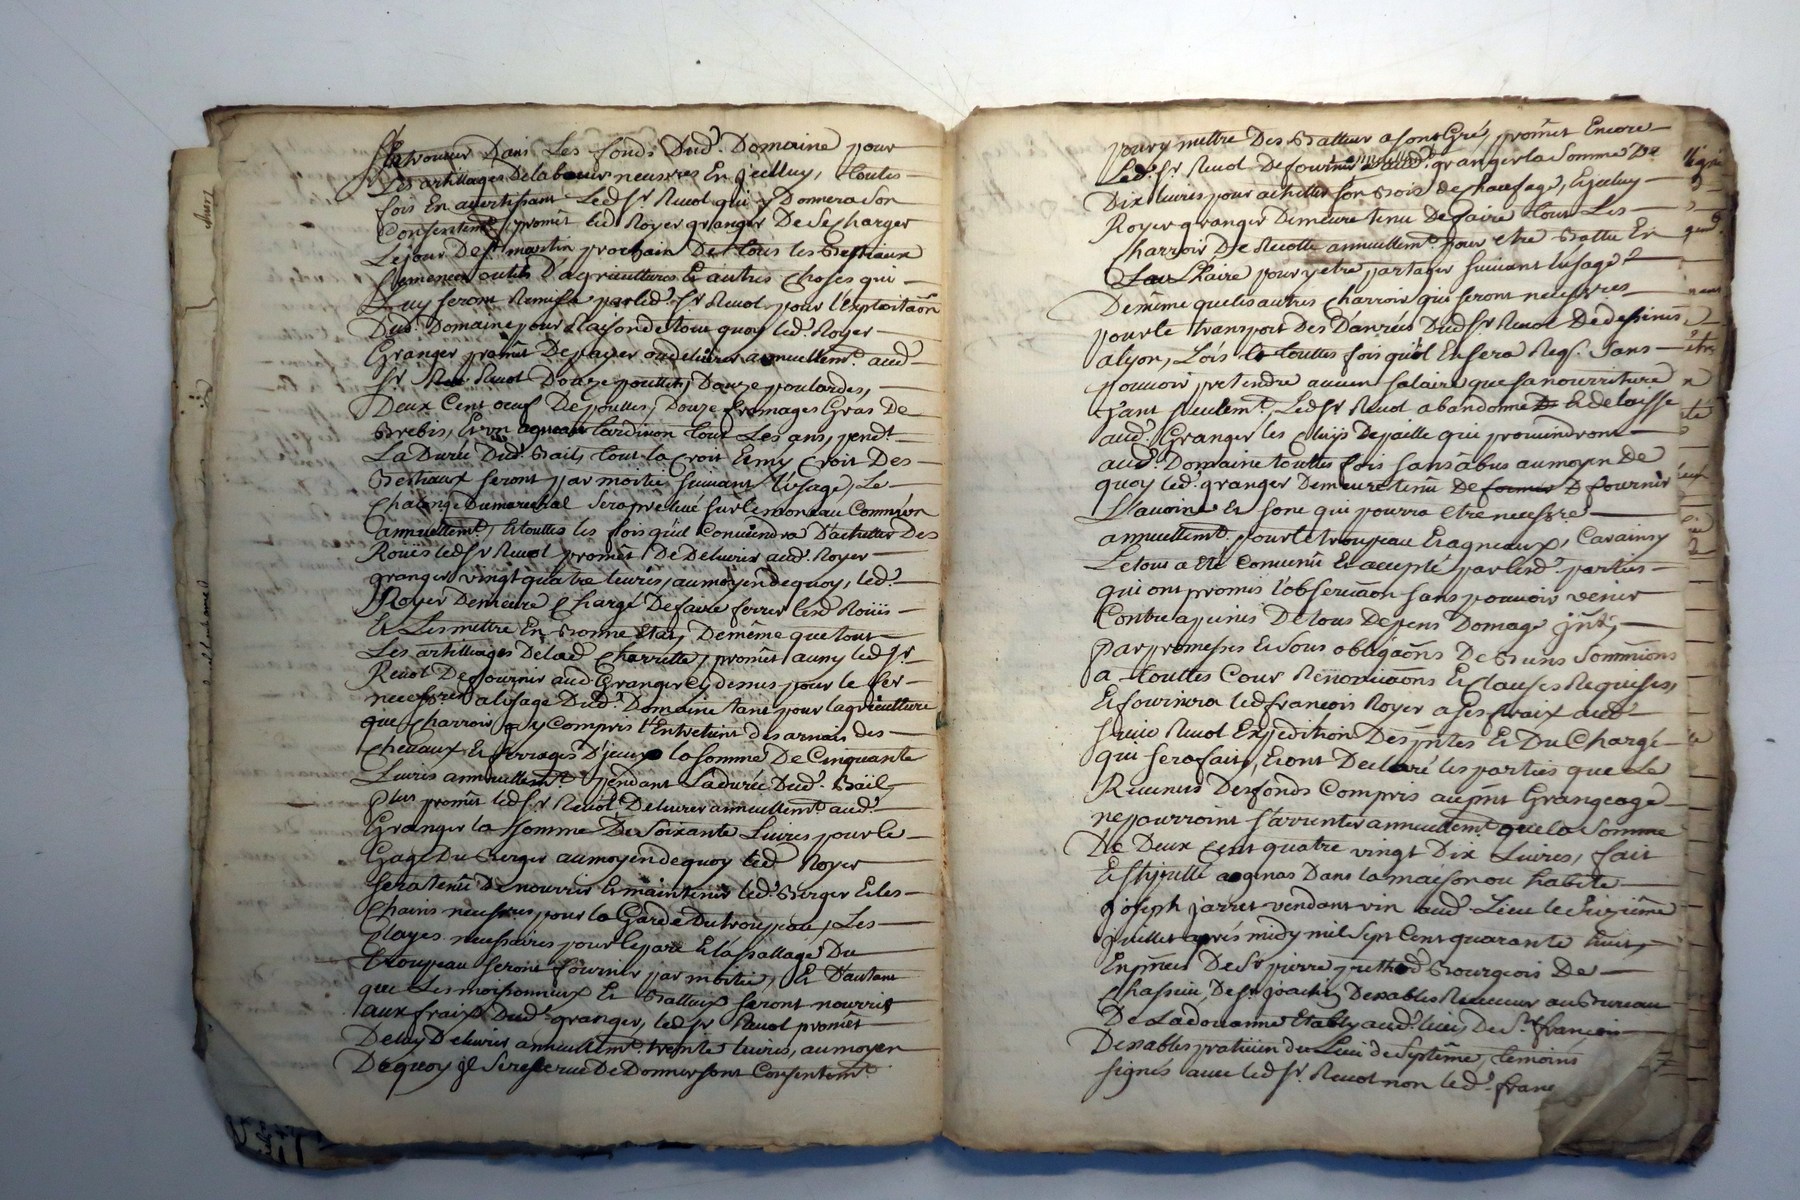 trouver Dans Les fonds Dud. Domaine pour
Les artillages De labeur necesres En Jcelluy, toutes
fois En avertissant Led Sr Revol qui y Donnera Son
Consentemt, promèt led Royer granger De Se Charger
Le jour De St martin prochain De tous les Bestiaux
Semences outils D'agricultures & autres Choses qui
Luy seront Remise par led. Sr Revol pour l'Exploitaōn
Dud. Domaine pour Raison de tout quoy led. Royer
Granger promèt De payer ou delivrer annuellemt. aud
Sr Revol Douze poulets, Douze poulardes,
Deux Cent oeuf De poulles, Douze fromages Gras De
Brebis, Et un agneau tardivon tout Les ans, pendt.
La Durée Dud. Bail, tout la Croit Et my Croit Des
Bestiaux seront par moitié suivant l'usage, Le
Chalonge Du marechal Sera prelevé sur le monceau Commūn
annuellemt, Et touttes les fois qu'il Conviendra D'achetter Des
Roües led Sr Revol promèt De Delivrer aud. Royer
granger vingt quatre livres, au moyen de quoy, led.
Royer Demeure Chargé De faire ferrer lesd Roües
Et Les mettre En Bonne Etat, De même que tout
Les artillages De lad Charrette, promèt aussy led Sr.
Revol De fournir aud Granger Cy dessus pour le fer
necessres a lusage Dud. Domaine tant pour l'agriculture
que Charrois y Compris l'Entretient des arnais des
Chevaux Et ferrages D'jceux la somme De Cinquante
Livres annuellemt. pendant La durée Dud. Bail,
Plus promèt led Sr Revol Delivrer annuellemt aud.
Granger la somme De Soixante Livres pour le
Gage Du Berger au moyen de quoy led Royer
sera tenü De nourrir Et maintenir led. Berger Et les
Chains necessres pour la Garde Du troupeau, Les
Clayes necessaires pour le parc Et l'assallage Du
troupeau seront fournir par moitié, Et D'autant
que Les moissonneux Et Batteux seront nourris
aux fraix Dud. granger, led Sr Revol promèt
De luy Delivrer annuellemt. trente livres, au moyen
De quoy jl Se reserve De Donner sont Consentemt
pour y mettre Des Batteur a sont Gré, promèt Encore
Led. Sr Revol De fournir annuellemt aud. granger la Somme De
Dix livres pour achetter son Bois de chaufage, Et jcelluy
Royer granger Demeure tenu De faire tout Les
Charrois De Recolte annuellemt. pour etre Battu En
L'aire pour y etre partager suivant l'usage
De même que les autres Charrois qui seront necessres
pour le transport Des Danrées Dud Sr Revol De dessines
a lyon, Lors Et touttes fois qu'il En sera Reqs. Sans
pouvoir pretendre aucun salaire que sa nourriture
tant seulemt, Led Sr Revol abandonne Et delaisse
aud. Granger les Cluÿs De paille qui proviendront
aud. Domaine touttes fois sans abus au moyen De
quoy led. granger Demeure tenü De fournir
L'avoine Et son qui pourra etre necessre
annuellemt. pour le troupeau Et agneaux, Car ainsy
Le tout a Eté Convenü Et accepté par lesd. parties
qui ont promis l'observaōn sans pouvoir venir
Contre a peines De tous Depens Domage jnts,
Par promesses Et Sous obligaōns De Biens Sommīons
a touttes Cour Rënonciaōns Et Clauses Requises,
Et fournira led françois Royer a ses fraix aud
Sieur Revol Expedition Des pntes Et Du Chargé
qui sera fait, Et ont Declaré les parties que Le
Revenus Des fonds Compris au pnt Grangeage
ne pourroint s'arrenter annuellemt. que la Somme
De Deux Cent quatre vingt Dix Livres, fait
Et stipullé a genas Dans la maison ou habite
joseph jarret vendant vin aud Lieu le seizième
juillet après midy mil Sept Cent quarante huit,
En pnces De Sr pierre Bourgeois De
Chassieu, De Sr joachin Desables Receveur au Bureau
De La douanne Etably aud. lieu, De Sr françois
Desables praticien du Lieu de Septême, temoins
signés avec led Sr. Revol non led. franç